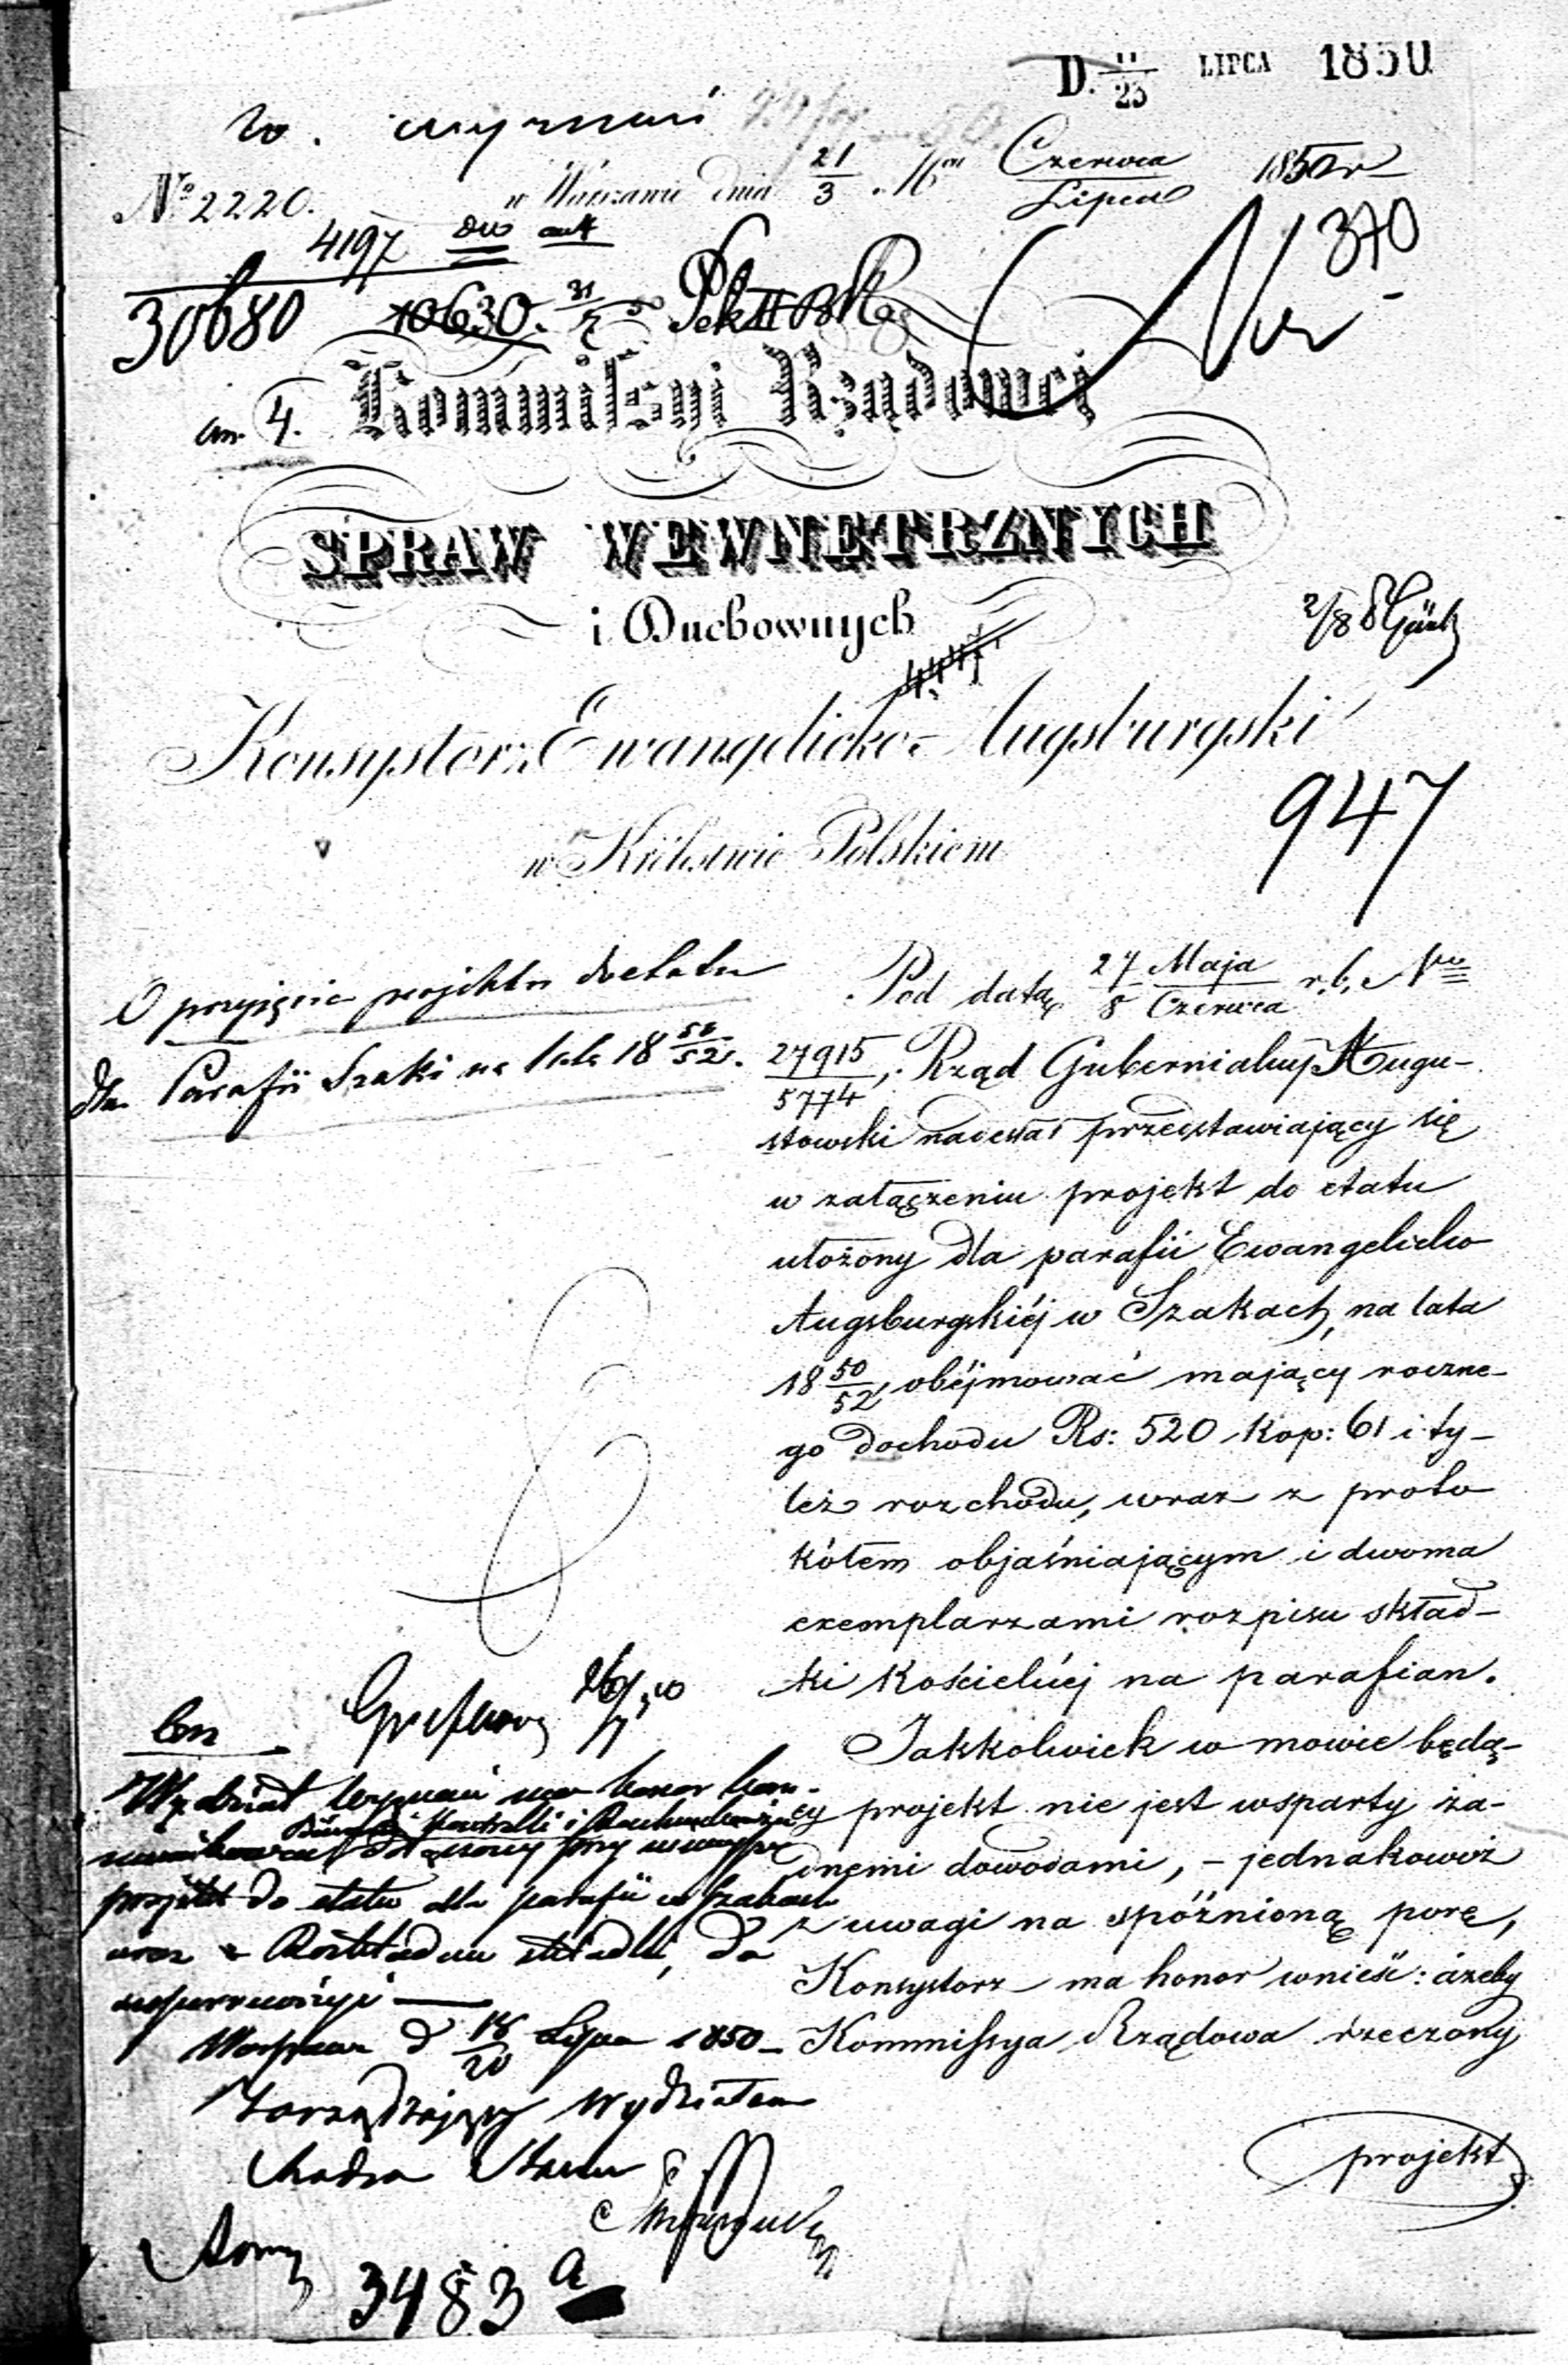 D. 11/23 LIPCA 1850
W. wyznań
No 2220. w Warszawie dnia 21/3 Mca Czerwca/Lipca 1850 r
4197
30680 10630. 31/7 50
Nr 370
an. 4.
Kommissyi Rządowej
SPRAW WEWNĘTRZNYCH
i Duchownych
2/8
Konsystorz Ewangelicko-Augsburgski
w Królestwie Polskiem
947
O przyjęcie projektu do etatu
dla Parafii Szaki na lata 18 50/52.
Pod datą 27 Maja/8 Czerwca r. b. Nro
27915/5774, Rząd Gubernialny Augu-
stowski nadesłał przedstawiający się
w załączeniu projekt do etatu
ułożony dla parafii Ewangelicko
Augsburgskiéj w Szakach, na lata
18 50/52, obéjmować mający roczne-
go dochodu Rs: 520 kop: 61 i ty-
leż rozchodu, wraz z proto
kółem objaśniającym i dwoma
exemplarzami rozpisu skład-
ki Kościelnéj na parafian.
Jakkolwiek w mowie będą-
cy projekt nie jest wsparty ża-
dnemi dowodami, - jednakowoż
z uwagi na spóźnioną porę,
Konsystorz ma honor wnieść: ażeby
Kommissya Rządowa rzeczony
projekt
Wydział Wyznań ma honor kom-
projekt do etatu dla parafii w Szakach
wraz z Rozkładem składki, do
Warszawa d 18/20 Lipca 1850
Zarządzający Wydziałem
Radca Stanu
3483 a